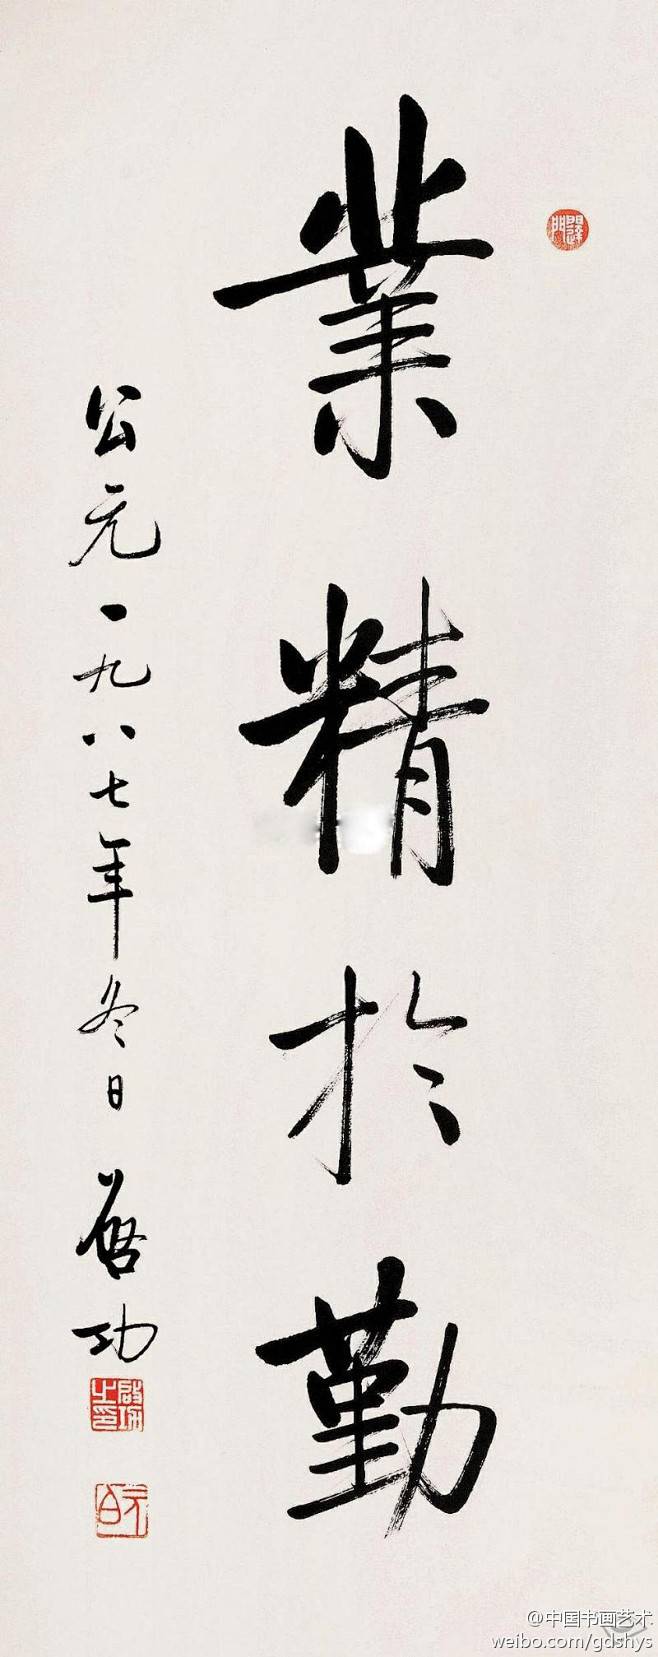 業精於勤
公元一九八七年冬日啓功
啟功之印
元白
@中国书画艺术
weibo.com/gdshys